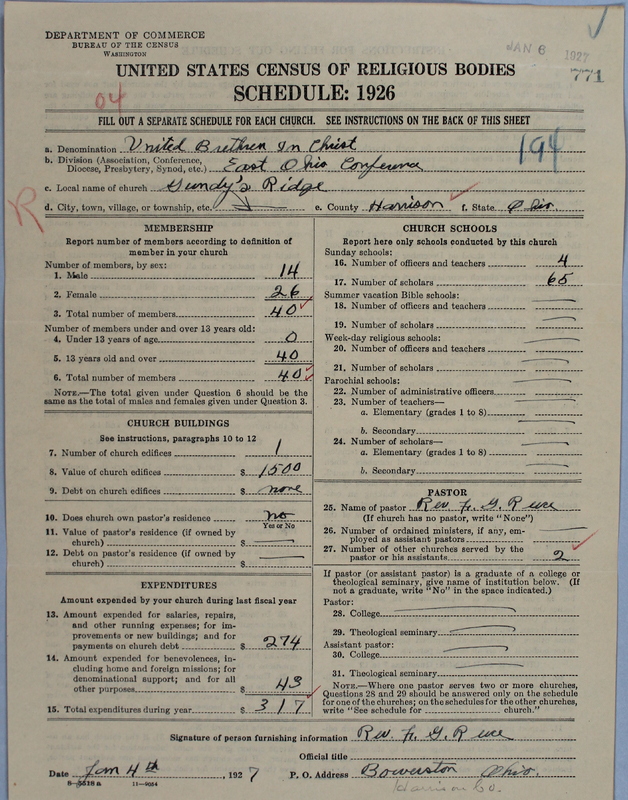 DEPARTMENT OF COMMERCE
BUREAU OF THE CENSUS
WASHINGTON
JAN 6 1927
771
UNITED STATES CENSUS OF RELIGIOUS BODIES
SCHEDULE: 1926
04
FILL OUT A SEPARATE SCHEDULE FOR EACH CHURCH. SEE INSTRUCTIONS ON THE BACK OF THIS SHEET
194
a. Denomination United Brethren In Christ
b. Division (Association, Conference, Diocese, Presbytery, Synod, etc.) East Ohio Conference
c. Local name of church Gundy's Ridge
d. City, town, village, or township, etc.
e. County Harrison f. State Ohio
R
MEMBERSHIP
Report number of members according to definition of
member in your church
Number of members, by sex:
1. Male 14
2. Female 26
3. Total number of members 40
Number of members under and over 13 years old:
4. Under 13 years of age 0
5. 13 years old and over 40
6. Total number of members 40
NOTE.—The total given under Question 6 should be
same as the total of males and females given under Question 3.
CHURCH BUILDINGS
See instructions, paragraphs 10 to 12
7. Number of church edifices 1
8. Value of church edifices $ 1500
9. Debt on church edifices $ none
10. Does church own pastor's residence no
Yes or No
11. Value of pastor's residence (if owned by
church) $
12. Debt on pastor's residence (if owned by
church) $
EXPENDITURES
Amount expended by your church during last fiscal year
13. Amount expended for salaries, repairs,
and other running expenses; for im-
provements or new buildings; and for
payments on church debt $ 274
14. Amount expended for benevolences, in-
cluding home and foreign missions; for
denominational support; and for all
other purposes $ 43
15. Total expenditures during year $ 317
CHURCH SCHOOLS
Report here only schools conducted by this church
Sunday schools:
16. Number of officers and teachers 4
17. Number of scholars 65
Summer vacation Bible schools:
18. Number of officers and teachers
19. Number of scholars
Week-day religious schools:
20. Number of officers and teachers
21. Number of scholars
Parochial schools:
22. Number of administrative officers
23. Number of teachers—
a. Elementary (grades 1 to 8)
b. Secondary
24. Number of scholars—
a. Elementary (grades 1 to 8)
b. Secondary
PASTOR
25. Name of pastor Rev. G.
(If church has no pastor, write "None")
26. Number of ordained ministers, if any, em-
ployed as assistant pastors
27. Number of other churches served by the
pastor or his assistants 2
If pastor (or assistant pastor) is a graduate of a college or
theological seminary, give name of institution below. (If
not a graduate, write "No" in the space indicated.)
Pastor:
28. College
29. Theological seminary
Assistant pastor:
30. College
31. Theological seminary
NOTE.—Where one pastor serves two or more churches,
Questions 28 and 29 should be answered only on the schedule
for one of the churches; on the schedules for the other churches,
write "See schedule for church."
Signature of person furnishing information Rev. G.
Official title
Date Jan 4th, 1927 P. O. Address Bowerston Ohio.
8-5518 a 11-9054
Harrison Co.